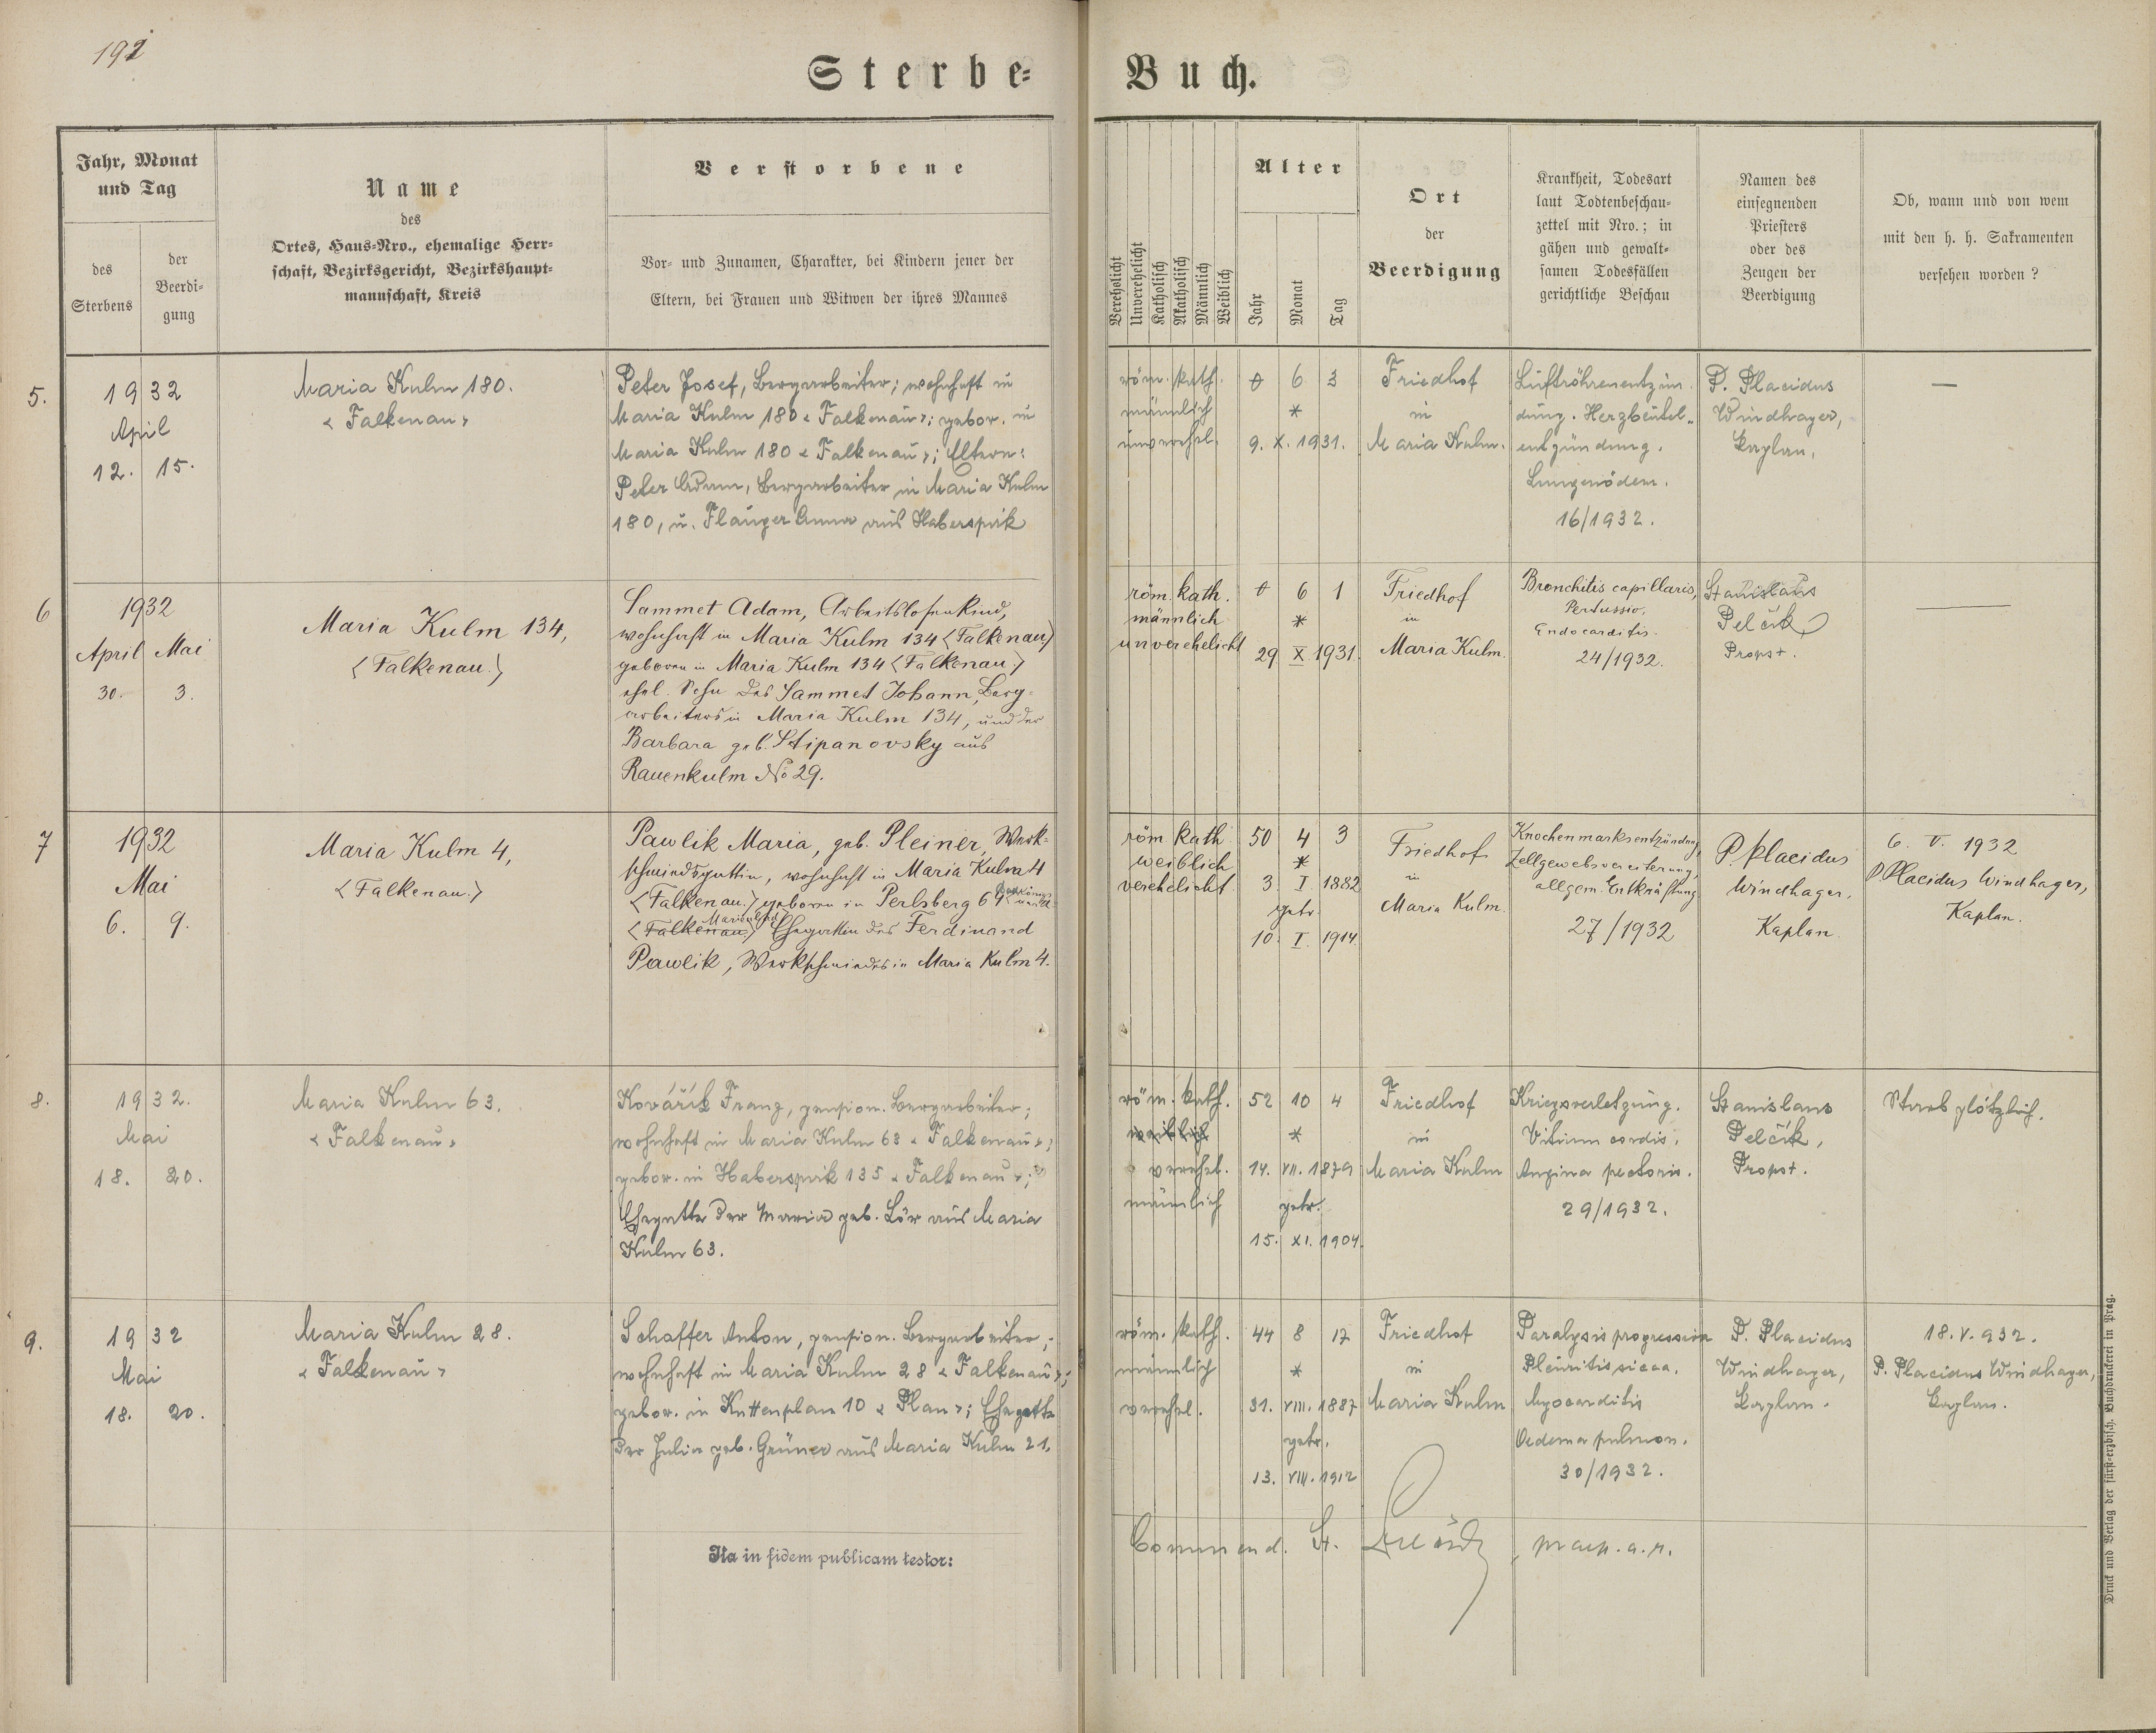 192
Sterbe-
Buch.
Jahr, Monat
und Tag
des
Sterbens
der
Beerdi-
gung
Name
des
Ortes, Haus-Nro., ehemalige Herr-
schaft, Bezirksgericht, Bezirkshaupt-
mannschaft, Kreis
Verstorbene
Vor- und Zunamen, Charakter, bei Kindern jener der
Eltern, bei Frauen und Witwen der ihres Mannes
Verehelicht
Unverehelicht
Katholisch
Akatholisch
Männlich
Weiblich
Alter
Jahr
Monat
Tag
Ort
der
Beerdigung
Krankheit, Todesart
laut Todtenbeschau-
zettel mit Nro.; in
gähen und gewalt-
samen Todesfällen
gerichtliche Beschau
Namen des
einsegnenden
Priesters
oder des
Zeugen der
Beerdigung
Ob, wann und von wem
mit den h. h. Sakramenten
versehen worden?
5.
1932
April
12. 15.
Maria Kulm 180.
< Falkenau >
Peter Josef, Bergarbeiter; wohnhaft in
Maria Kulm 180 < Falkenau >; gebor. in
Maria Kulm 180 < Falkenau >; Eltern:
Peter Adam, Bergarbeiter in Maria Kulm
180, u. Flauger Anna aus Haberspirk
röm. kath.
männlich
unverehel.
0 6 3
*
9. X. 1931.
Friedhof
in
Maria Kulm.
Luftröhrenentzün-
dung. Herzbeutel-
entzündung.
Lungenödem.
16/1932.
P. Placidus
Windhager,
Kaplan.
—
6
1932
April Mai
30. 3.
Maria Kulm 134,
<Falkenau.>
Sammet Adam, Arbeitslosenkind,
wohnhaft in Maria Kulm 134 <Falkenau>
geboren in Maria Kulm 134 <Falkenau.>
ehel. Sohn des Sammet Johann, Berg-
arbeiters in Maria Kulm 134, und der
Barbara geb. Stipanovsky aus
Rauenkulm No 29.
röm. kath.
männlich
unverehelicht
0 6 1
*
29 X 1931.
Friedhof
in
Maria Kulm.
Bronchitis capillaris,
Pertussio,
Endocarditis.
24/1932.
Stanislaus
Pelčík
Propst.
—
7
1932
Mai
6. 9.
Maria Kulm 4,
<Falkenau.>
Pawlik Maria, geb. Pleiner, Werk-
schmiedsgattin, wohnhaft in Maria Kulm 4
<Falkenau.> geboren in Perlsberg 64
Marienbad
<Falkenau> Ehegattin des Ferdinand
Pawlik, Werkschmiedes in Maria Kulm 4.
röm kath
weiblich
verehelicht
50 4 3
*
3. I. 1882
getr.
10. I. 1914.
Friedhof
in
Maria Kulm.
Knochenmarksentzündung,
Zellgewebsvereiterung,
allgem. Entkräftung
27/1932
P. Placidus
Windhager,
Kaplan.
6. V. 1932
P. Placidus Windhager,
Kaplan.
8.
1932.
Mai
18. 20.
Maria Kulm 63.
< Falkenau >
Kovářik Franz, pension. Bergarbeiter;
wohnhaft in Maria Kulm 63 < Falkenau >;
gebor. in Haberspirk 135 < Falkenau >;
Ehegatte der Maria geb. Lör aus Maria
Kulm 63.
röm. kath.
weiblich
verehel.
männlich
52 10 4
*
14. VII. 1879
getr.
15. XI. 1904.
Friedhof
in
Maria Kulm
Kriegsverletzung.
Vitium cordis.
Angina pectoris.
29/1932.
Stanislaus
Pelčík,
Propst.
Starb plötzlich.
9.
1932
Mai
18. 20.
Maria Kulm 28.
< Falkenau >
Schaffer Anton, pension. Bergarbeiter;
wohnhaft in Maria Kulm 28 < Falkenau >;
gebor. in Kuttenplan 10 < Plan >; Ehegatte
der Julia geb. Grüner aus Maria Kulm 21.
röm. kath.
männlich
verehel.
44 8 17
*
31. VIII. 1887
getr.
13. VIII. 1912
Friedhof
in
Maria Kulm
Paralysis progressiva
Pleuritis sicca.
Myocarditis
Oedema pulmon.
30/1932.
P. Placidus
Windhager,
Kaplan.
18. V. 932.
P. Placidus Windhager,
Kaplan.
Ita in fidem publicam testor:
Commend. St. Pelčík,
Druck und Verlag der fürst-erzbisch. Buchdruckerei in Prag.